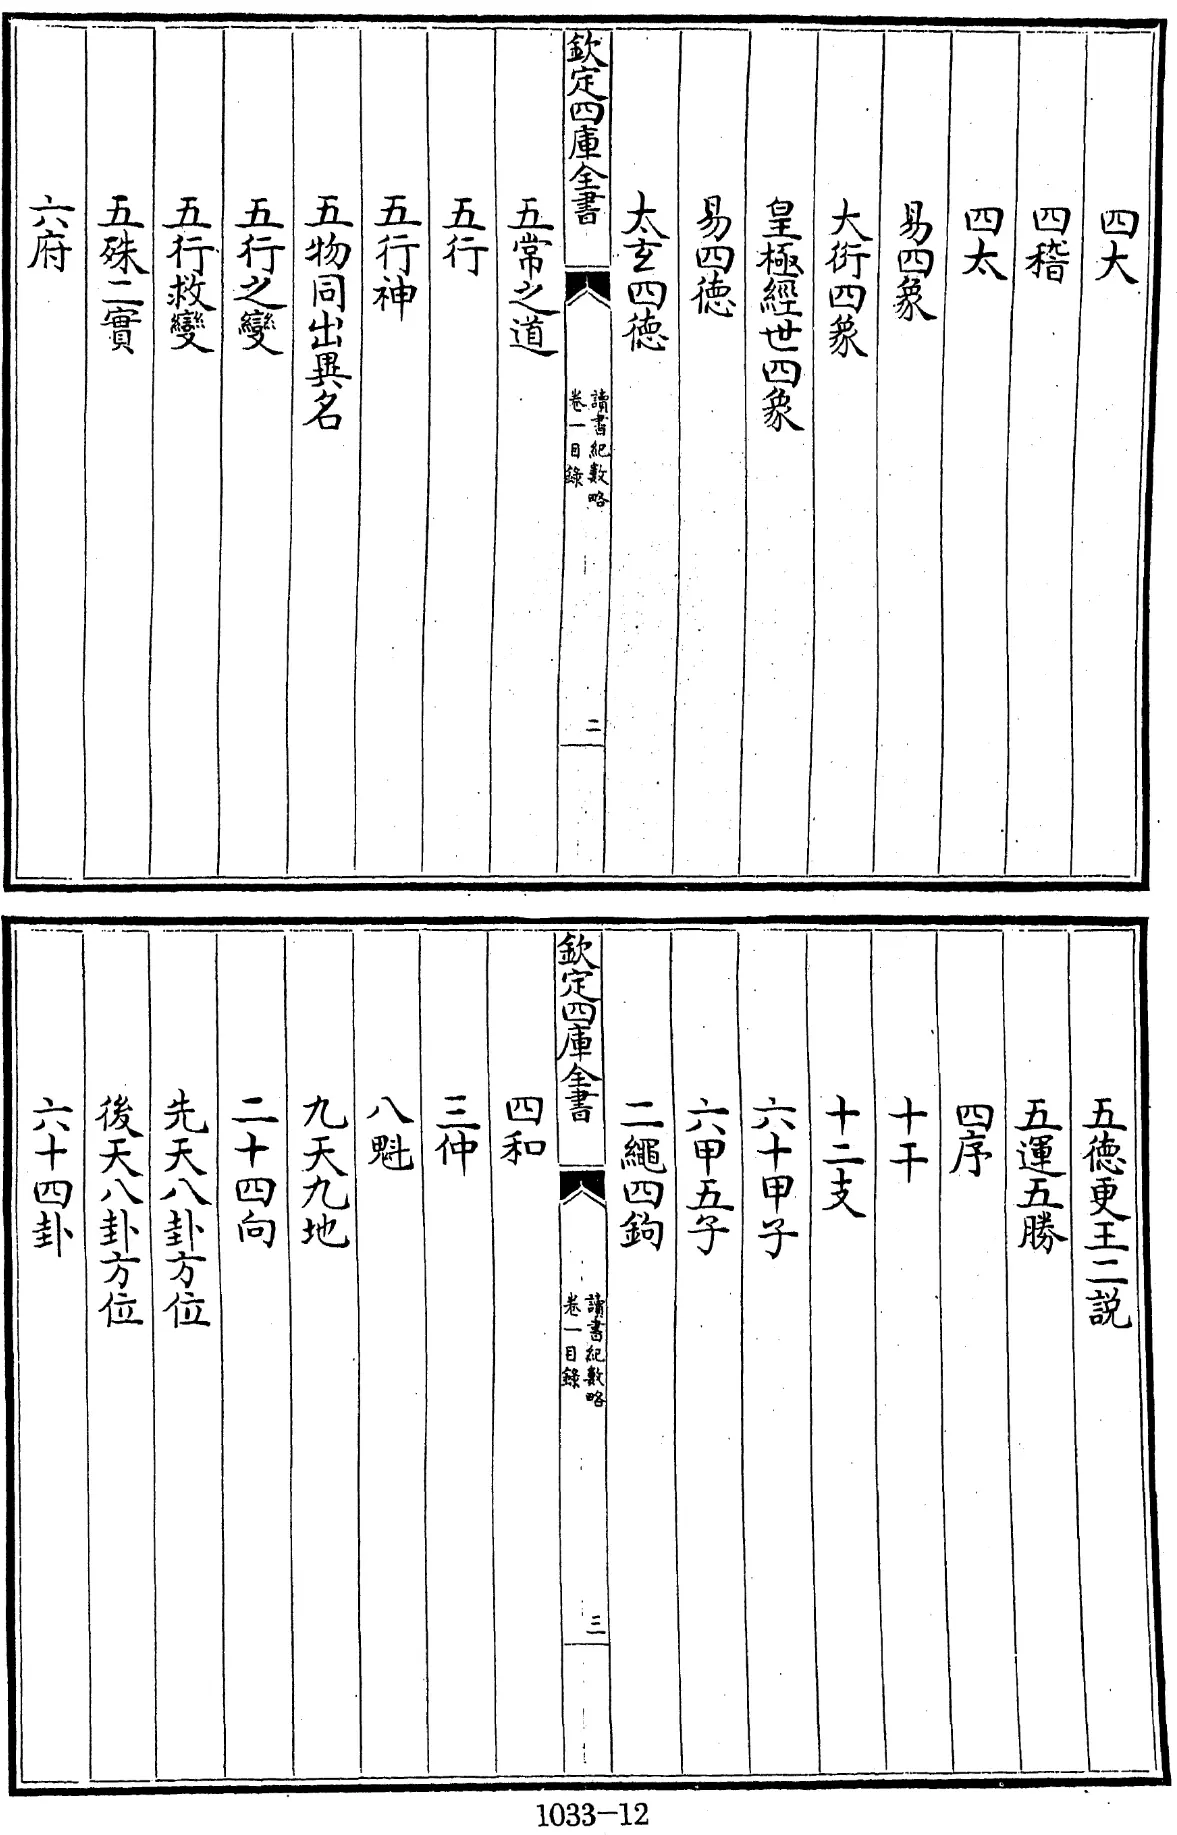 四大
四稽
四太
易四象
大衍四象
皇極經世四象
易四德
太玄四德
欽定四庫全書
讀書紀數略
卷一目錄
二
五常之道
五行
五行神
五物同出異名
五行之變
五行救變
五殊二實
六府
五德更王二說
五運五勝
四序
十干
十二支
六十甲子
六甲五子
二繩四鉤
欽定四庫全書
讀書紀數略
卷一目錄
三
四和
三仲
八魁
九天九地
二十四向
先天八卦方位
後天八卦方位
六十四卦
1033-12